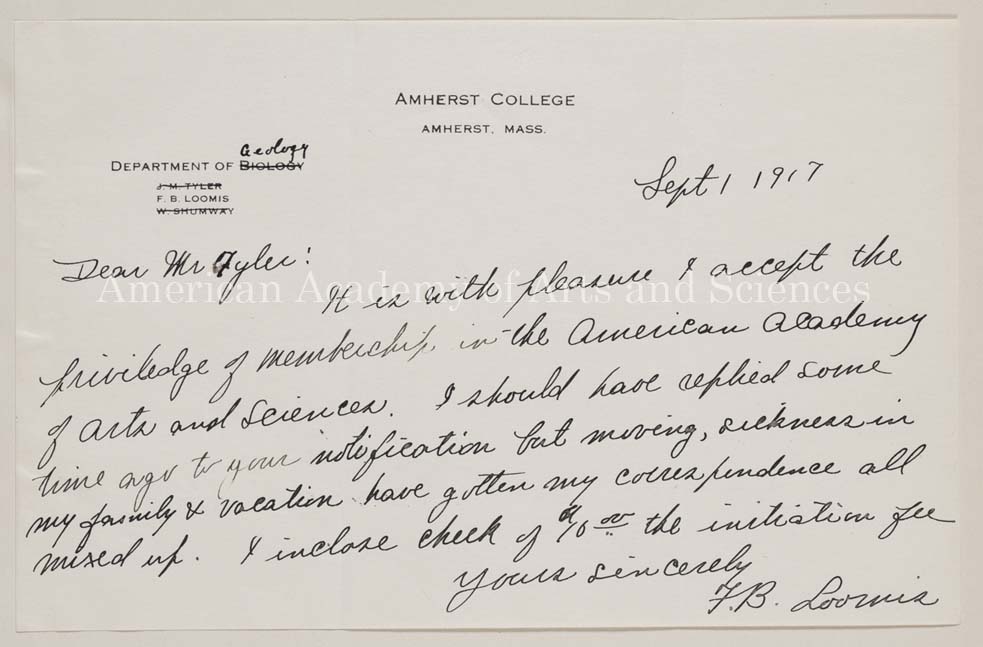 AMHERST COLLEGE
AMHERST, MASS.
Geology
DEPARTMENT OF BIOLOGY
J. M. TYLER
F. B. LOOMIS
W. SHUMWAY
Sept 1 1917
Dear Mr Tyler:
It is with pleasure I accept the
American Academy of Arts and Sciences
priviledge of membership in the American Academy
of Arts and Sciences. I should have replied some
time ago to your notification but moving, sickness in
my family & vacation have gotten my correspondence all
mixed up. I inclose check of $10 00 the initiation fee
Yours sincerely
F.B. Loomis